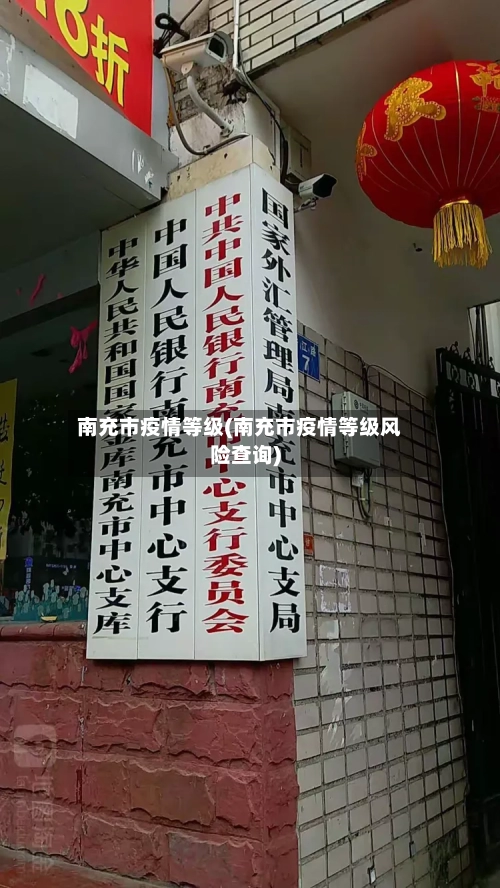 8折
国家外汇管理局南充市中心支局
中共中国人民银行南充市中心支行委员会
中国人民银行南充市中心支行
中华人民共和国国家金库南充市中心支库
7
南充市疫情等级(南充市疫情等级风
险查询)